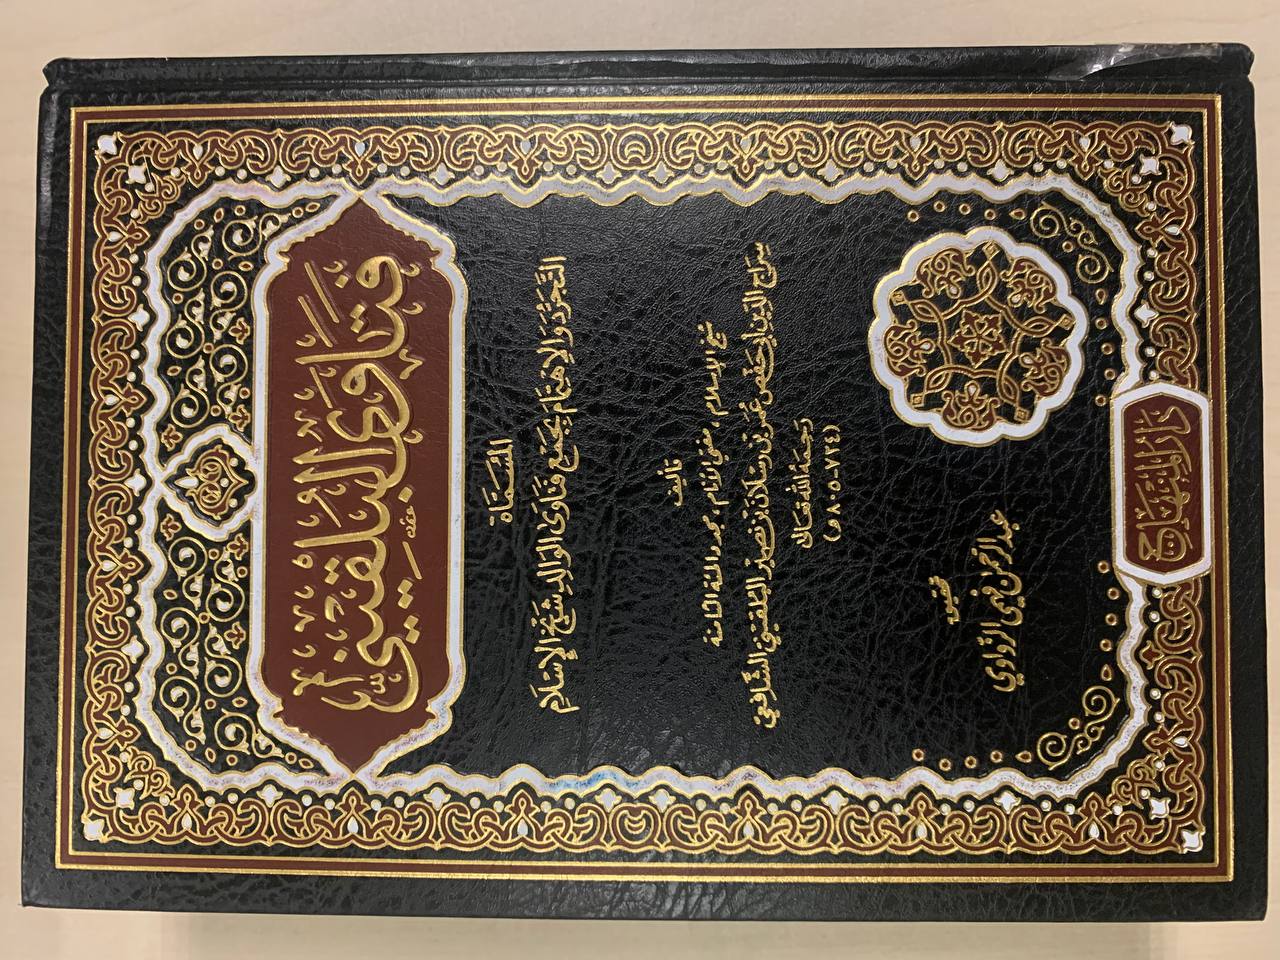 فتاوى البلقيني
المسماة
التجرد والاهتمام بجمع فتاوى الوالد شيخ الإسلام
تأليف
شيخ الإسلام، مفتي الأنام، مجدد المائة الثامنة
سراج الدين أبي حفص عمر بن رسلان بن نصير البلقيني الشافعي
رحمه الله تعالى
(٧٢٤-٨٠٥هـ)
تحقيق
عبد الرحمن فهمي الزواوي
دار المنهاج